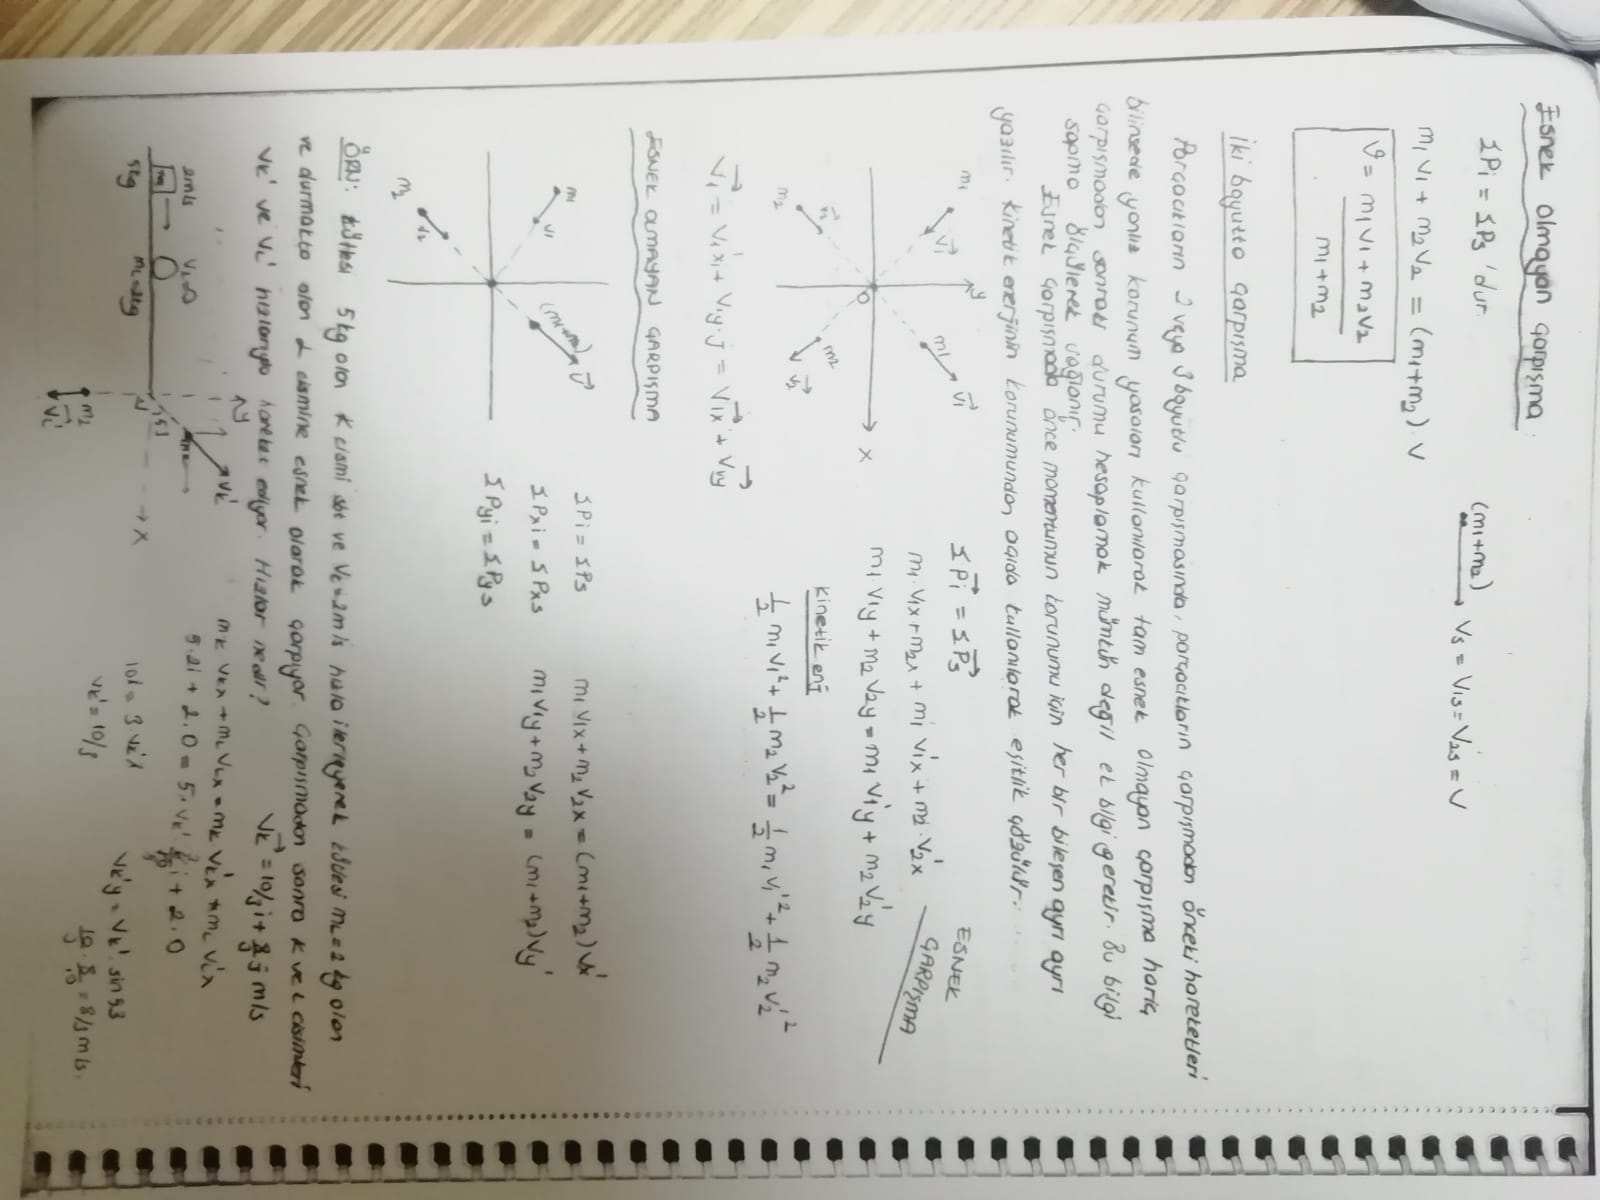 Esnek Olmayan Çarpışma
ΣPi = ΣPs 'dur.
(m1+m2) Vs = V1s = V2s = V
m1 V1 + m2 V2 = (m1+m2) . V
ϑ = m1 V1 + m2 V2
m1 + m2
İki boyutta çarpışma
Parçacıkların 2 veya 3 boyutlu çarpışmasında, parçacıkların çarpışmadan önceki hareketleri
bilinsede yanlız korunum yasaları kullanılarak tam esnek olmayan çarpışma hariç
çarpışmadan sonraki durumu hesaplamak mümkün değil ek bilgi gerekir. Bu bilgi
sapma ölçülerek sağlanır.
Esnek çarpışmada önce momentumun korunumu için her bir bileşen ayrı ayrı
yazılır. Kinetik enerjinin korunumundan açıda kullanılarak eşitlik çözülür.
m1 V1 y m1 V1
O x
V2 m2 m2 V2
ΣPi = ΣPs
ESNEK ÇARPIŞMA
m1.V1x+m2x + m1 V1'x + m2.V2'x
m1.V1y + m2 V2y = m1 V1'y + m2 V2'y
Kinetik enj
1/2 m1 V1² + 1/2 m2 V2² = 1/2 m1 V1'² + 1/2 m2 V2'²
V1 = V1'xi + V1y.j = V1x + V1y
ESNEK OLMAYAN ÇARPIŞMA
m1 V1 (m1+m2) V
V2 m2
ΣPi = ΣPs m1 V1x + m2 V2x = (m1+m2) Vx'
ΣPxi = ΣPxs m1 V1y + m2 V2y = (m1+m2) Vy'
ΣPyi = ΣPys
ÖRN: kütlesi 5 kg olan K cismi sbt ve Vk=2m/s hızla ilerleyerek kütlesi mL=2 kg olan
ve durmakta olan L cismine esnek olarak çarpıyor. Çarpışmadan sonra K ve L cisimleri
Vk' ve VL' hızlarıyla hareket ediyor. Hızlar nedir? Vk' = 10/3 i + 8/3 j m/s
y Vk'
53 x
m2
VL'
2m/s VL=0
5kg mL=2kg
mk Vkx + mL VLx = mk Vk'x + mL VL'x
5.2i + 2.0 = 5.Vk' i + 2.0
10i = 3.Vk'i
Vk' = 10/3
Vk'y = Vk'. sin 53
10/3 . 8/10 = 8/3 m/s.